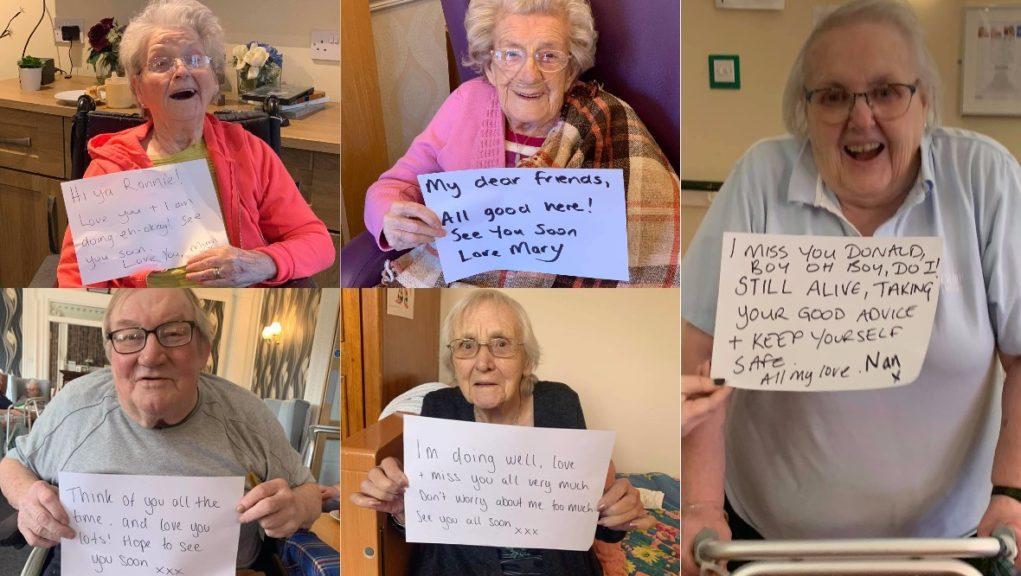 Hi ya Ronnie!
Love you + I am
doing eh-okay! See
you soon.
Love You, Mimi
My dear friends,
All good here!
See You Soon
Love Mary
I MISS YOU DONALD,
BOY OH BOY, DO I!
STILL ALIVE, TAKING
YOUR GOOD ADVICE
+ KEEP YOURSELF
SAFE.
All my love. Nan
x
Think of you all the
time. and love you
lots! Hope to see
you soon xxx
Im doing well, love
+ miss you all very much
Don't worry about me too much
See you all soon xxx